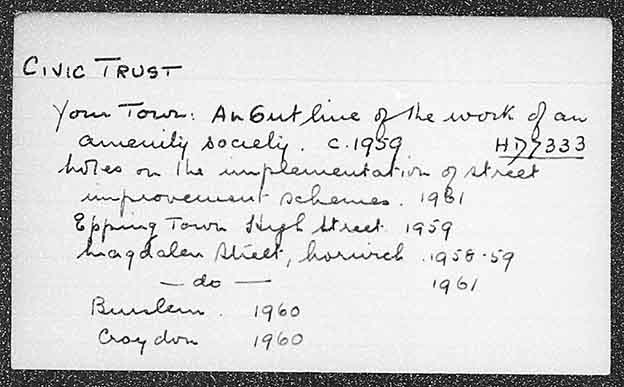 CIVIC TRUST
Your Town: An Outline of the work of an
amenity society. c.1959 HD7333
Notes on the implementation of street
improvement schemes. 1961
Epping Town High Street 1959
Magdalen Street, Norwich .1958-59
— do — 1961
Burslem . 1960
Croydon 1960